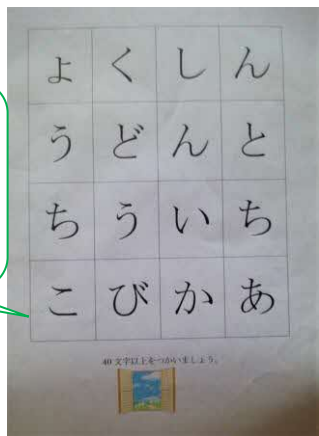 ょ く し ん
う ど ん と
ち う い ち
こ び か あ
40文字以上をつかいましょう。